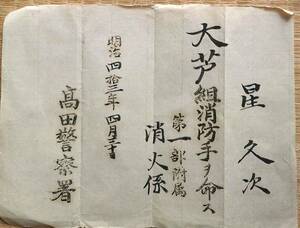 星久次
大芦組消防手ヲ命ス
第一部附属
消火係
明治四拾二年四月三十日
高田警察署